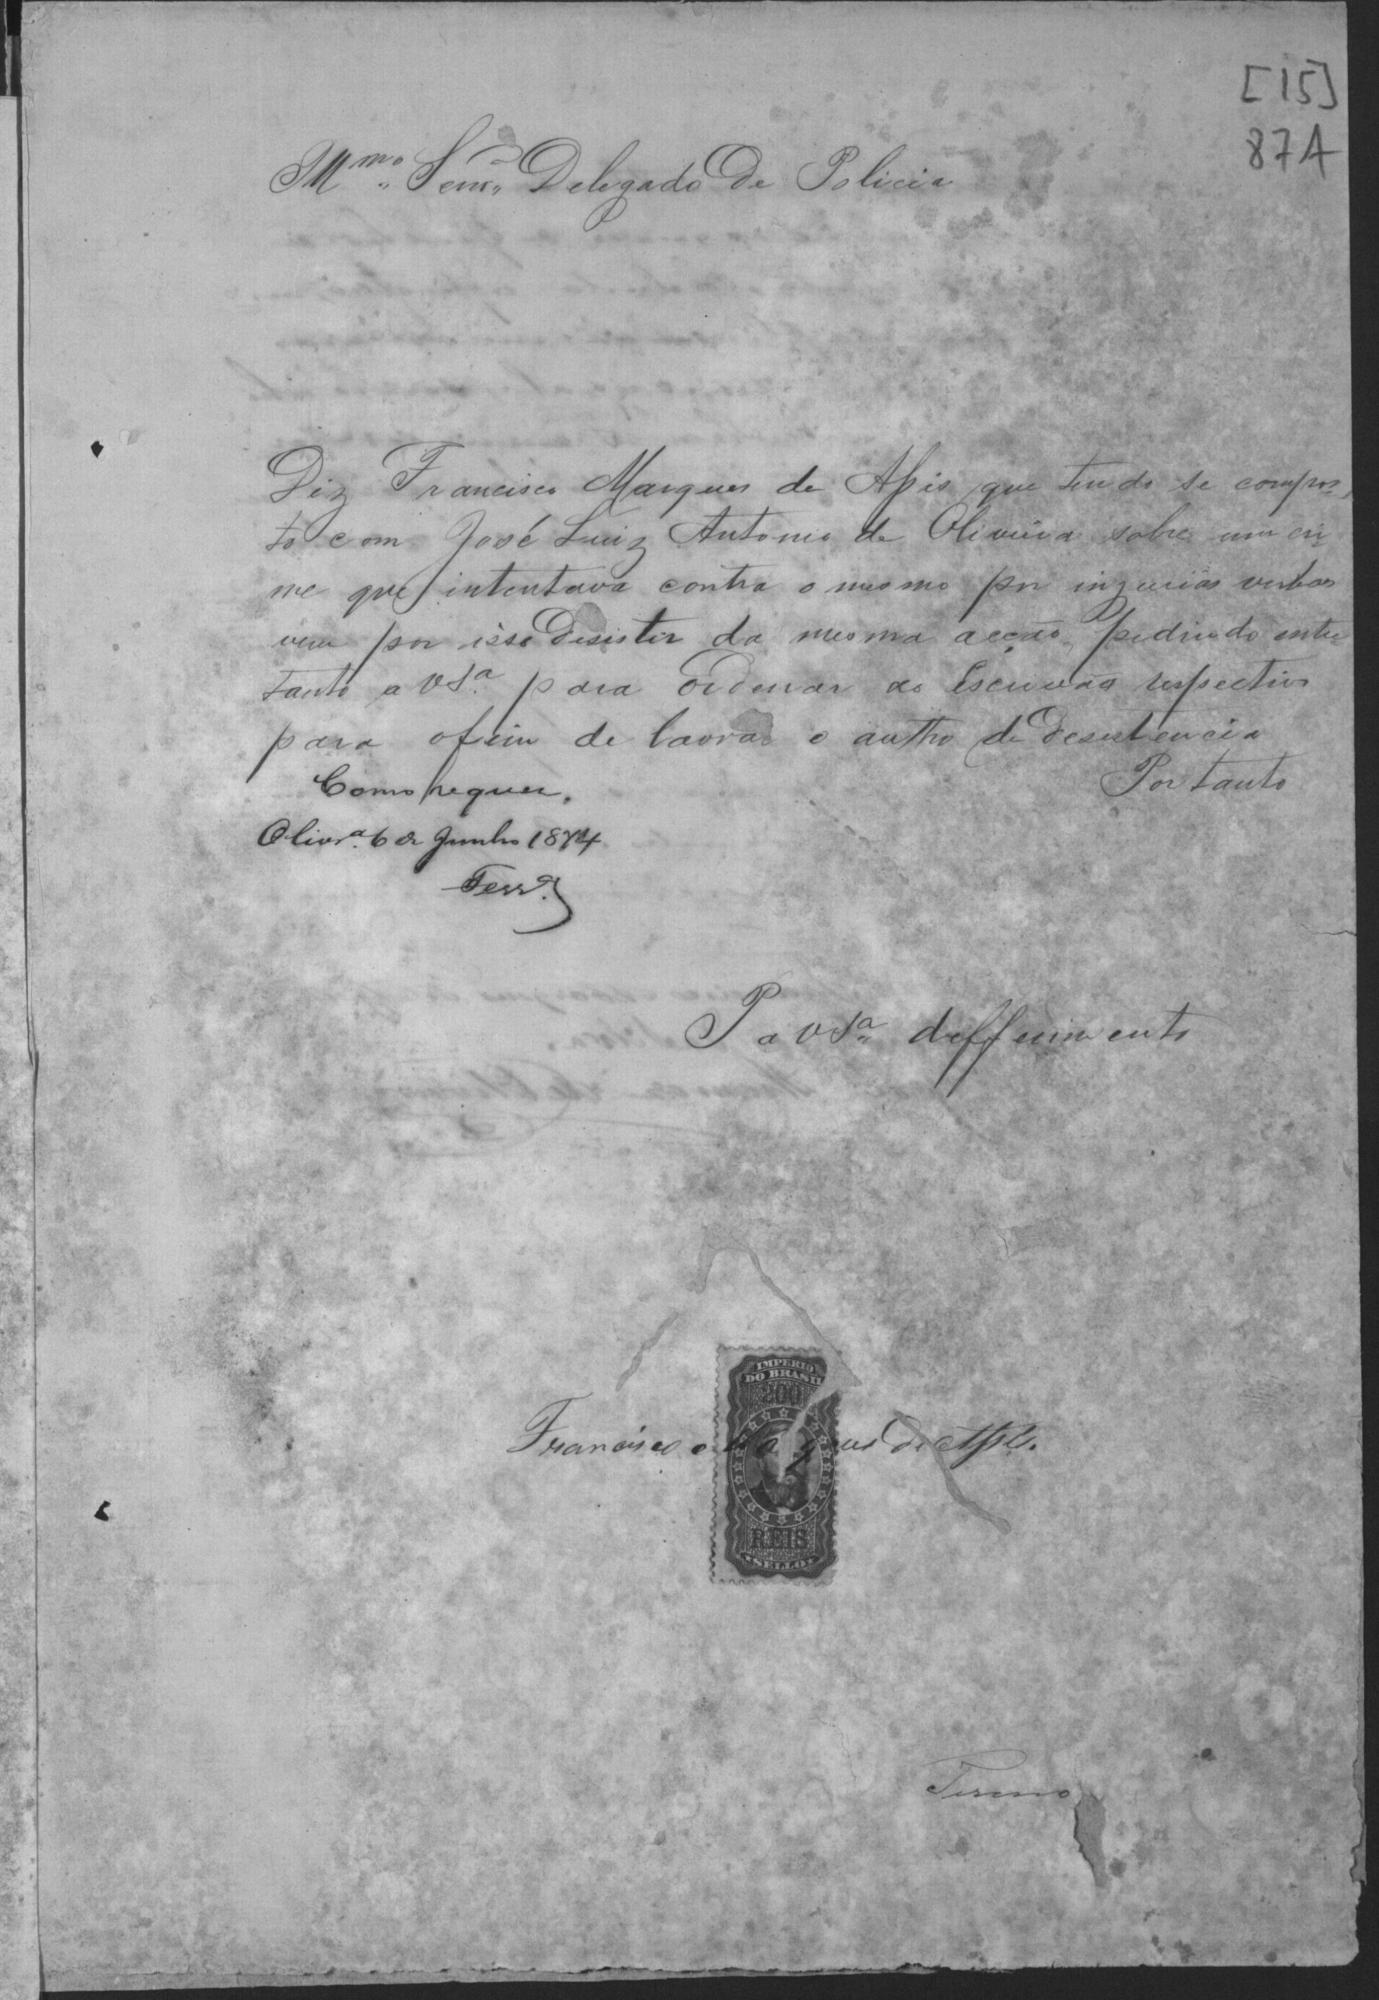 [15]
87A
Illmo. Senr. Delegado de Policia
Diz Francisco Marques de Assis que tendo se compos-
to com José Luiz Antonio de Oliveira sobre um cri-
me que intentava contra o mesmo por injurias verbaes
vem por isso desistir da mesma acção, pedindo entre
tanto a VSa. para ordenar ao Escrivão respectivo
para o fim de lavrar o autho de desistencia
Portanto
Como requer.
Olivra. 6 de Junho 1874
P a VSa. defferimento
IMPERIO
DO BRASIL
200
Francisco Marques de Assis.
REIS
SELLO
Termo